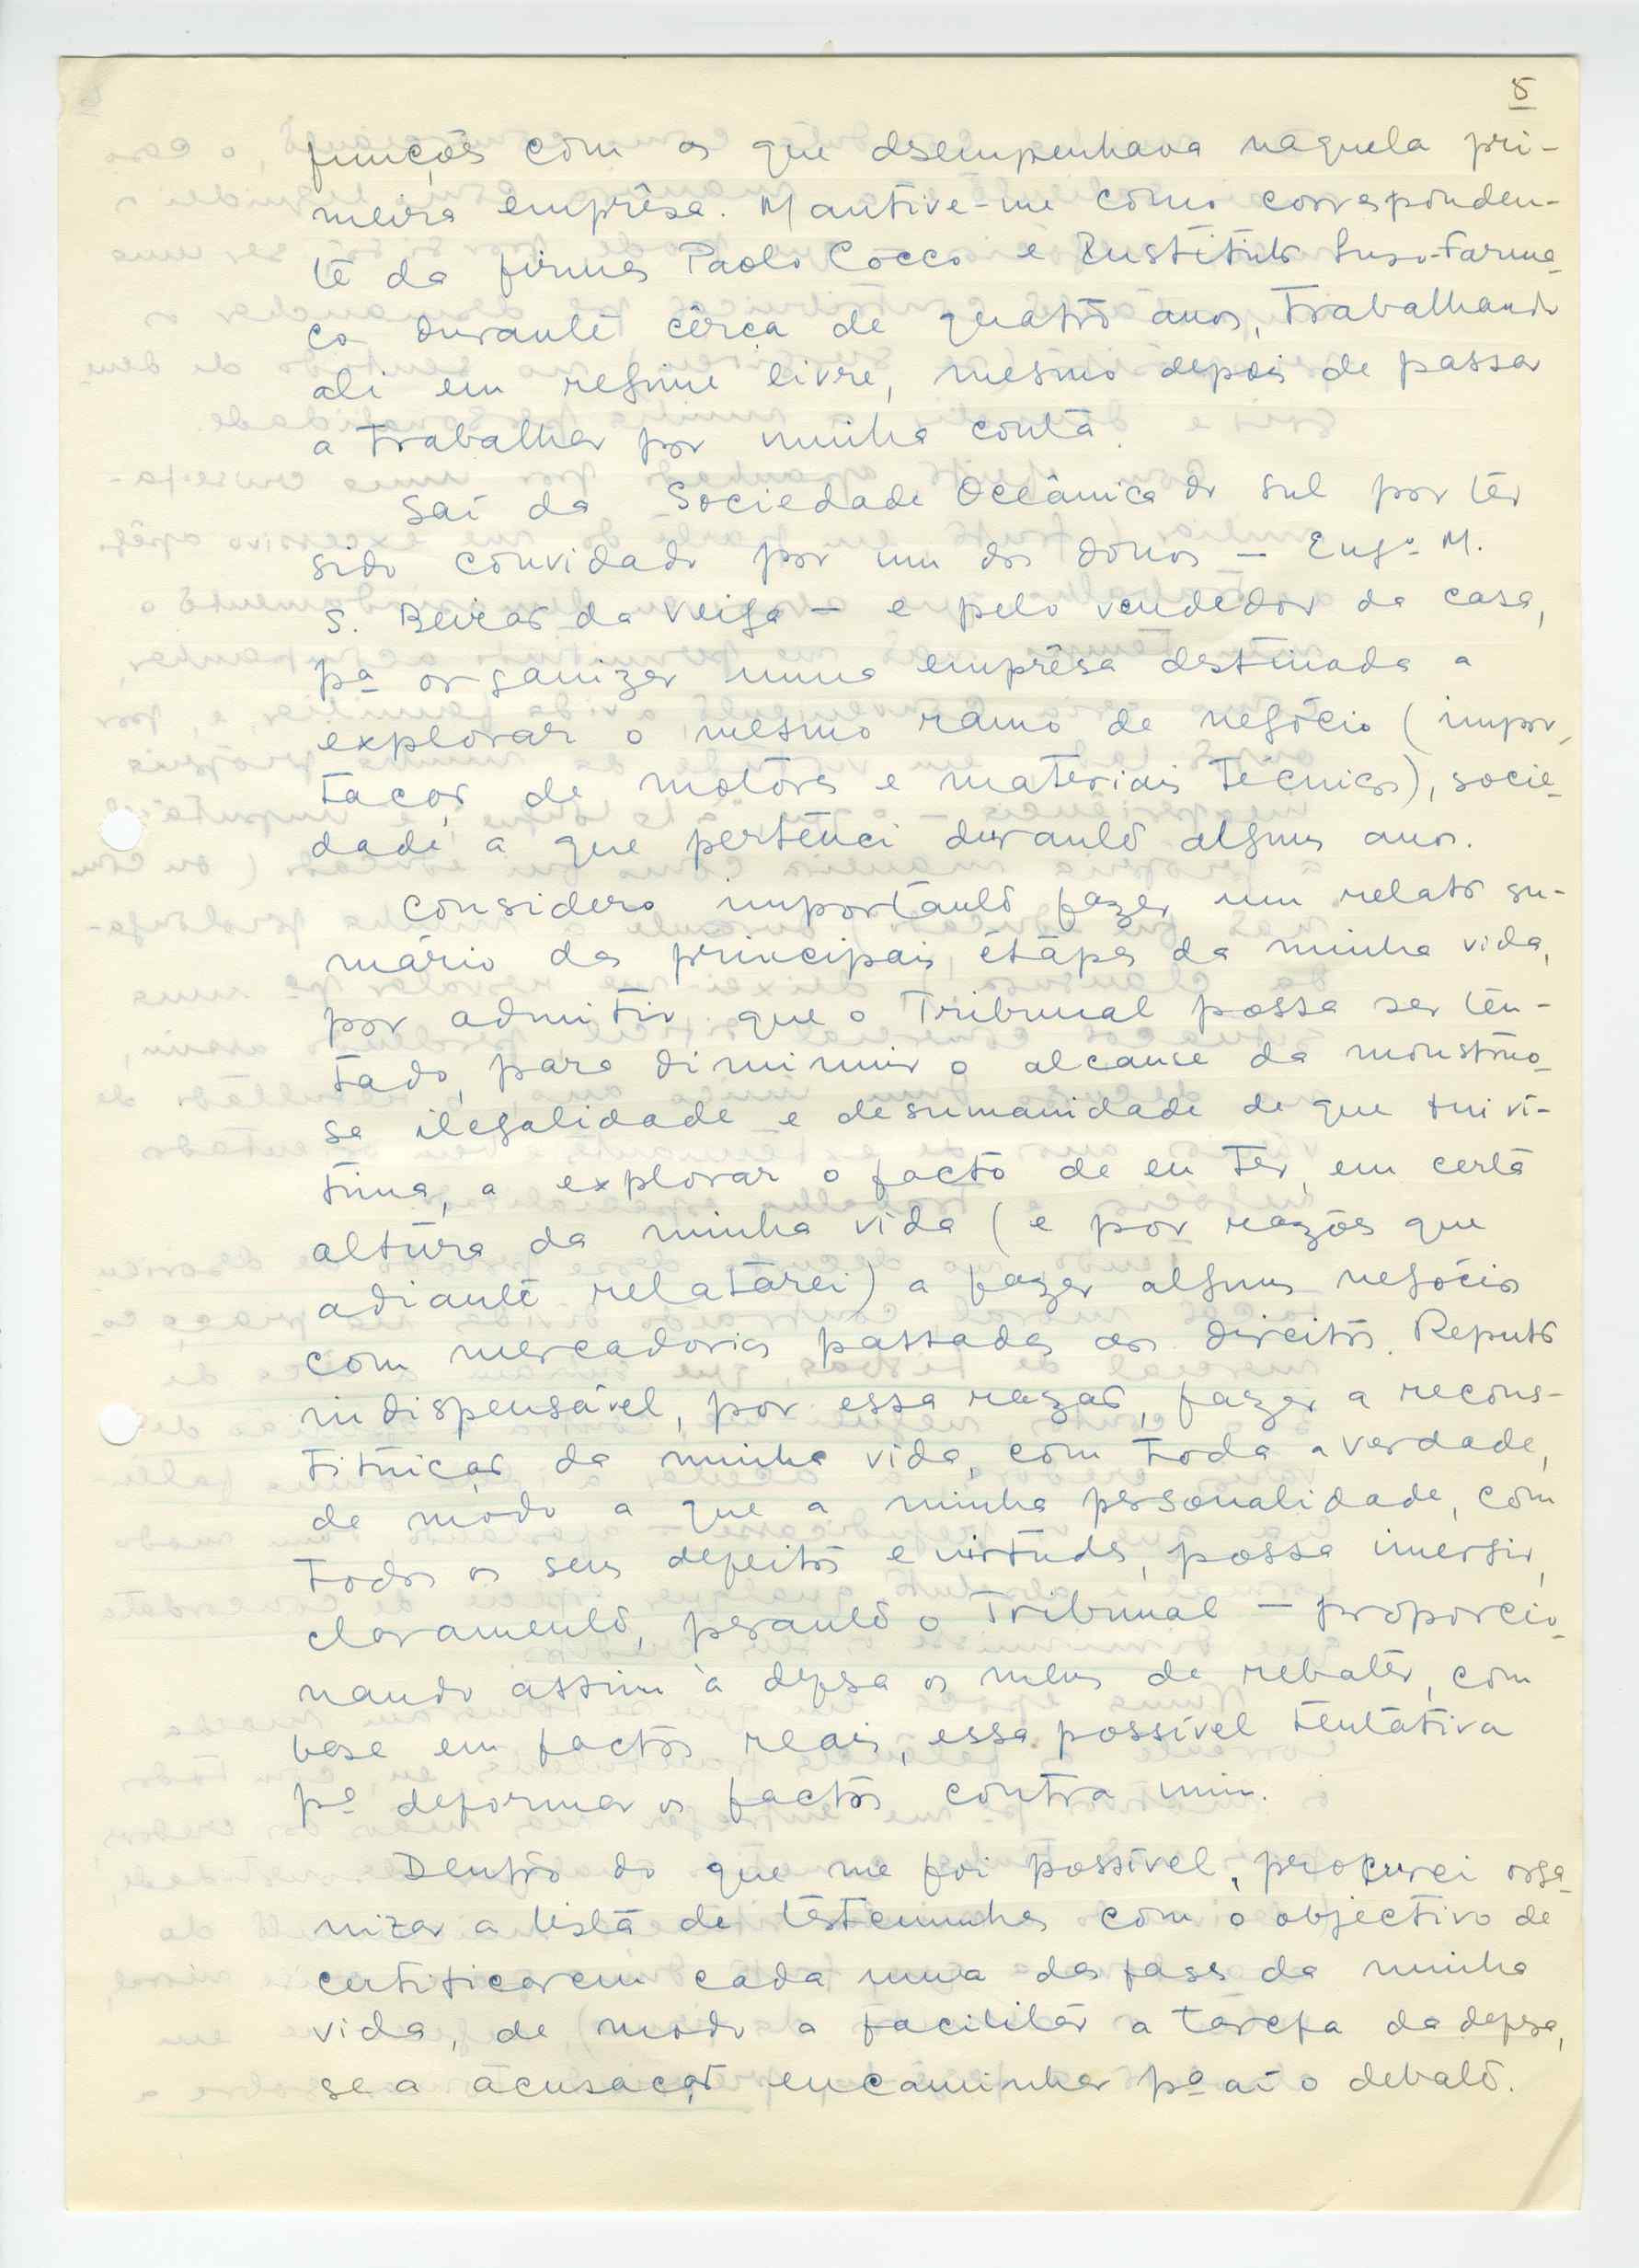 5
funções com as que desempenhava naquela pri-
meira emprêsa. Mantive-me como corresponden-
te da firmas Paolo Cocco e Instituto Luso-Farma-
co durante cêrca de quatro anos, trabalhando
ali em regime livre, mesmo depois de passar
a trabalhar por minha conta.
Saí da Sociedade Oceânica do Sul por ter
sido convidado por um dos donos — Engº M.
S. Beirão da Veiga — e pelo vendedor da casa,
pª organizar uma emprêsa destinada a
explorar o mesmo ramo de negócio (impor-
tação de motores e materiais técnicos), socie-
dade a que pertenci durante alguns anos.
Considero importante fazer um relato su-
mário das principais etapas da minha vida,
por admitir que o Tribunal possa ser ten-
tado, para diminuir o alcance da monstruo-
sa ilegalidade e desumanidade de que fui ví-
tima, a explorar o facto de eu ter, em certa
altura da minha vida (e por razões que
adiante relatarei) a fazer alguns negócios
com mercadorias passadas aos direitos. Reputo
indispensável, por essa razão, fazer a recons-
tituição da minha vida, com toda a verdade,
de modo a que a minha personalidade, com
todos os seus defeitos e virtudes, possa imergir,
claramente, perante o Tribunal — proporcio-
nando assim à defesa os meios de rebater, com
base em factos reais, essa possível tentativa
pª deformar os factos contra mim.
Dentro do que me foi possível, procurei orga-
nizar a lista de testemunhas com o objectivo de
certificarem cada uma das fases da minha
vida, de modo a facilitar a tarefa da defesa,
se a acusação encaminhar pª aí o debate.